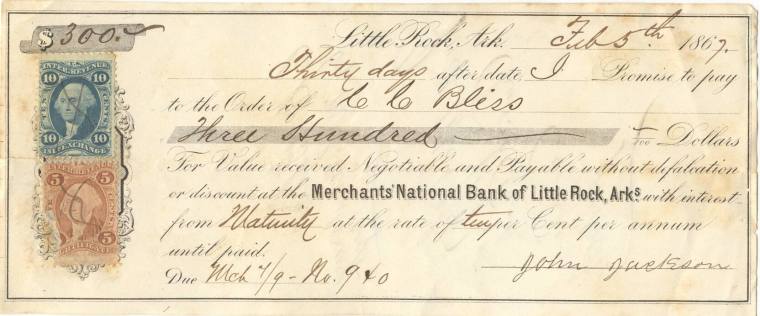 $300.-
Little Rock, Ark. Feb 5th 1867.
Thirty days after date I Promise to pay
to the Order of C C Bliss
Three Hundred /100 Dollars
For Value received Negotiable and Payable without defalcation
or discount at the Merchants' National Bank of Little Rock, Arks. with interest
from Maturity at the rate of ten per Cent per annum
until paid.
Due Mch 7/9 - No. 940
John Jackson
INTER. REVENUE
10 10
TEN CENTS
10 10
INL. EXCHANGE
INTER. REVENUE
5 5
FIVE CENTS
5 5
CERTIFICATE